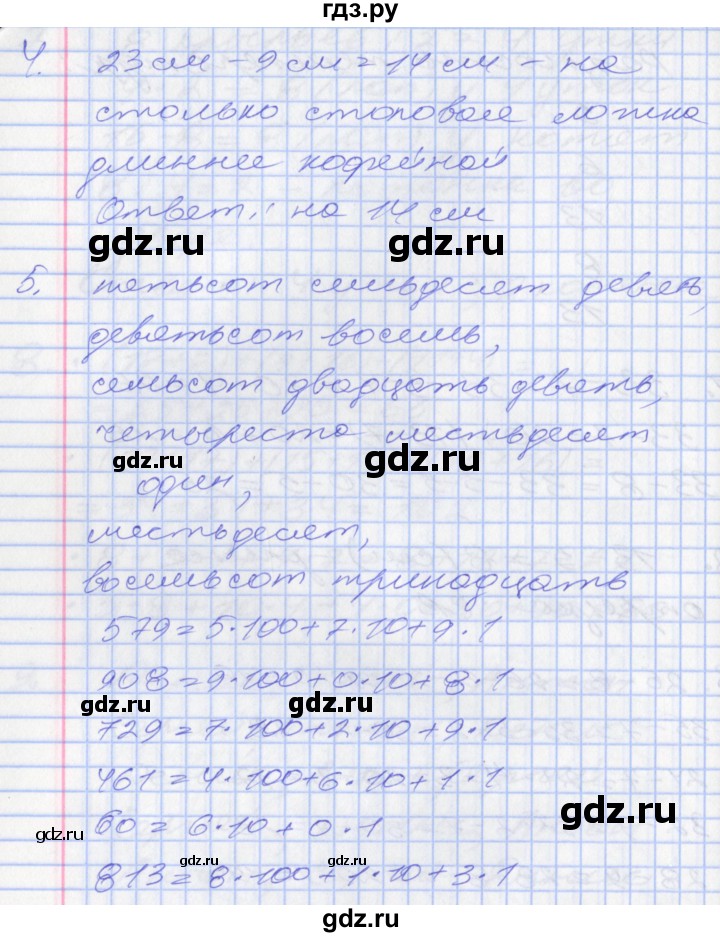 гдз.ру
4. 23 см - 9 см = 14 см - на
столько столовая ложка
длиннее кофейной
Ответ: на 14 см
gdz.ru gdz.ru
5. пятьсот семьдесят девять,
девятьсот восемь,
семьсот двадцать девять,
четыреста шестьдесят
gdz.ru gdz.ru
один,
шестьдесят,
восемьсот тринадцать
579 = 5·100 + 7·10 + 9·1
908 = 9·100 + 0·10 + 8·1
gdz.ru gdz.ru
729 = 7·100 + 2·10 + 9·1
461 = 4·100 + 6·10 + 1·1
gdz.ru
60 = 6·10 + 0·1
gdz.ru
gdz.ru gdz.ru
813 = 8·100 + 1·10 + 3·1
gdz.ru